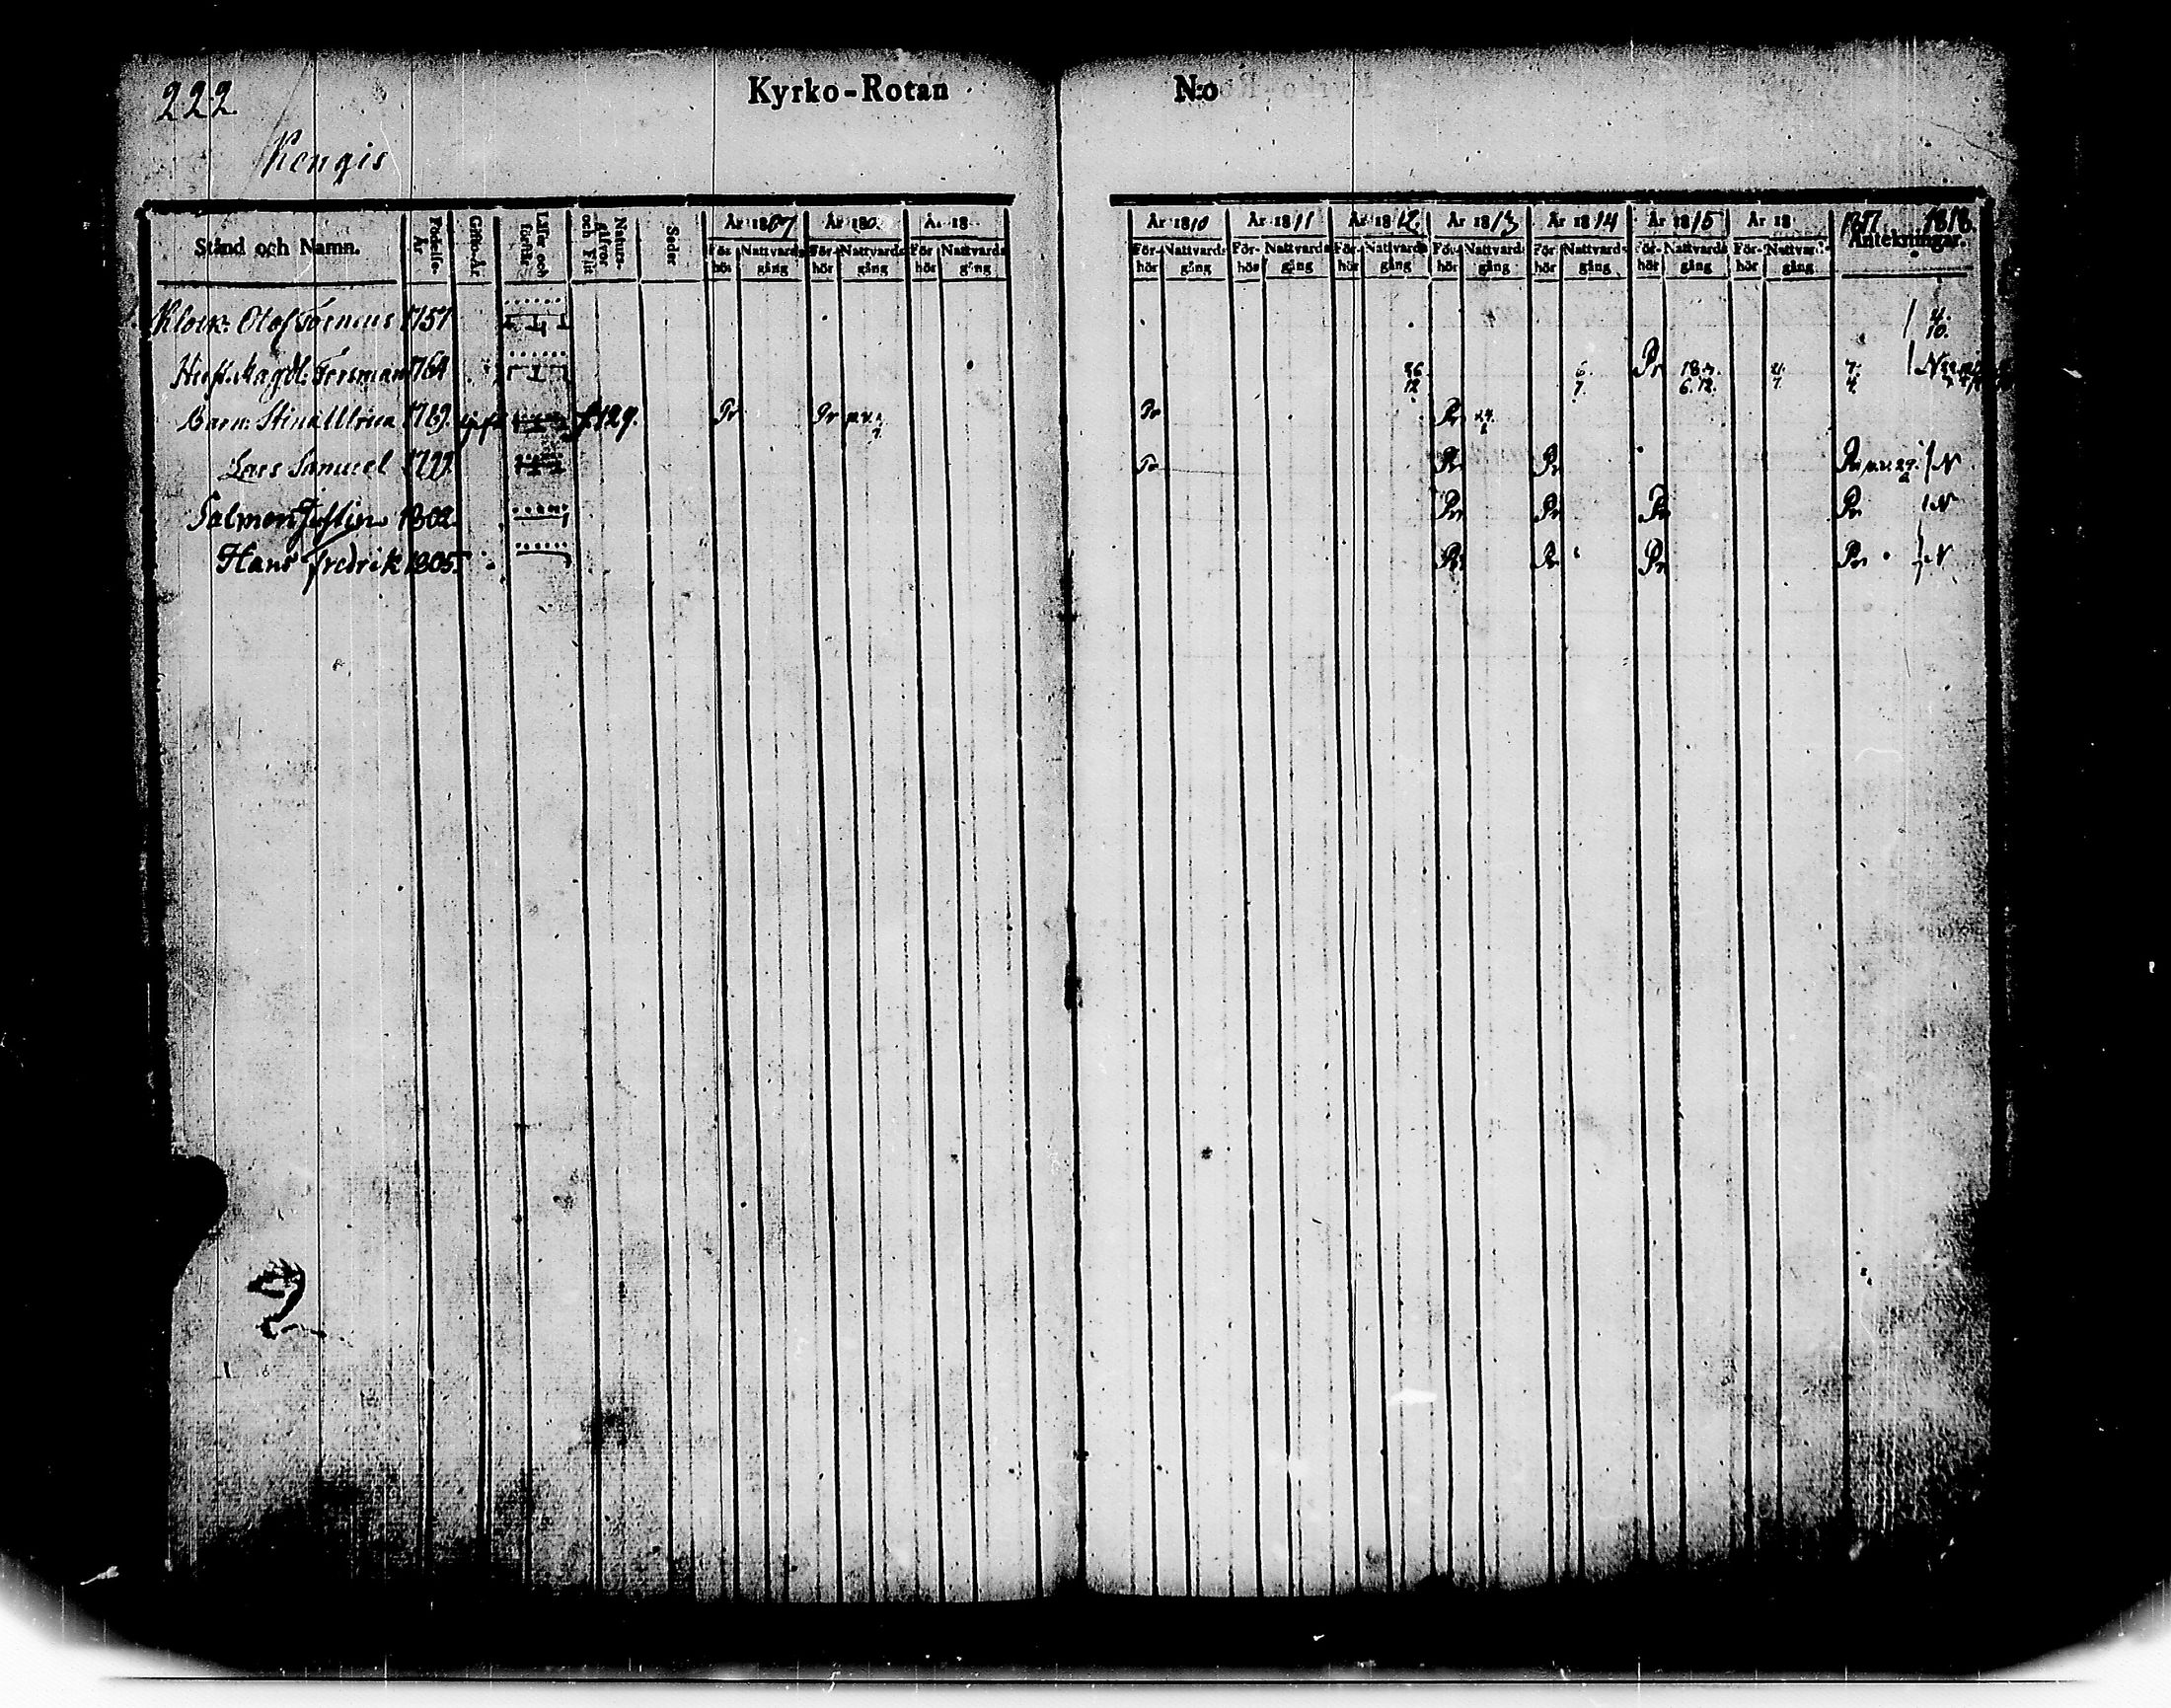 222
Kyrko-Rotan N:o
Kengis
År 1807 År 180 År 18 År 1810 År 1811 År 1812. År 1813 År 1814 År 1815 År 18 1817 1818.
Stånd och Namn. Födelse-År Gifte-År Läse och förstår Naturs-gåfvor och Flit Seder För-hör Nattvards gång För-hör Nattvards gång För-hör Nattvards gång För-hör Nattvards gång För-hör Nattvards gång För-hör Nattvards gång För-hör Nattvards gång För-hör Nattvards gång För-hör Nattvards gång För-hör Nattvards gång Antekningar.
Klock. Olof Torneus 1757 4. 10.
Hust. Magd: Forsman 1764 26 12 6. 7. Pr 18.7. 6.12. 7. 4. N
Barn: Stina Ulrica 1789. gift Pr Pr Pr Pr
Lars Samuel 1799. Pr Pr Pr Pr N
Salmon Justin 1802. Pr Pr Pr Pr N
Hans Fredrik 1805. Pr Pr Pr Pr N